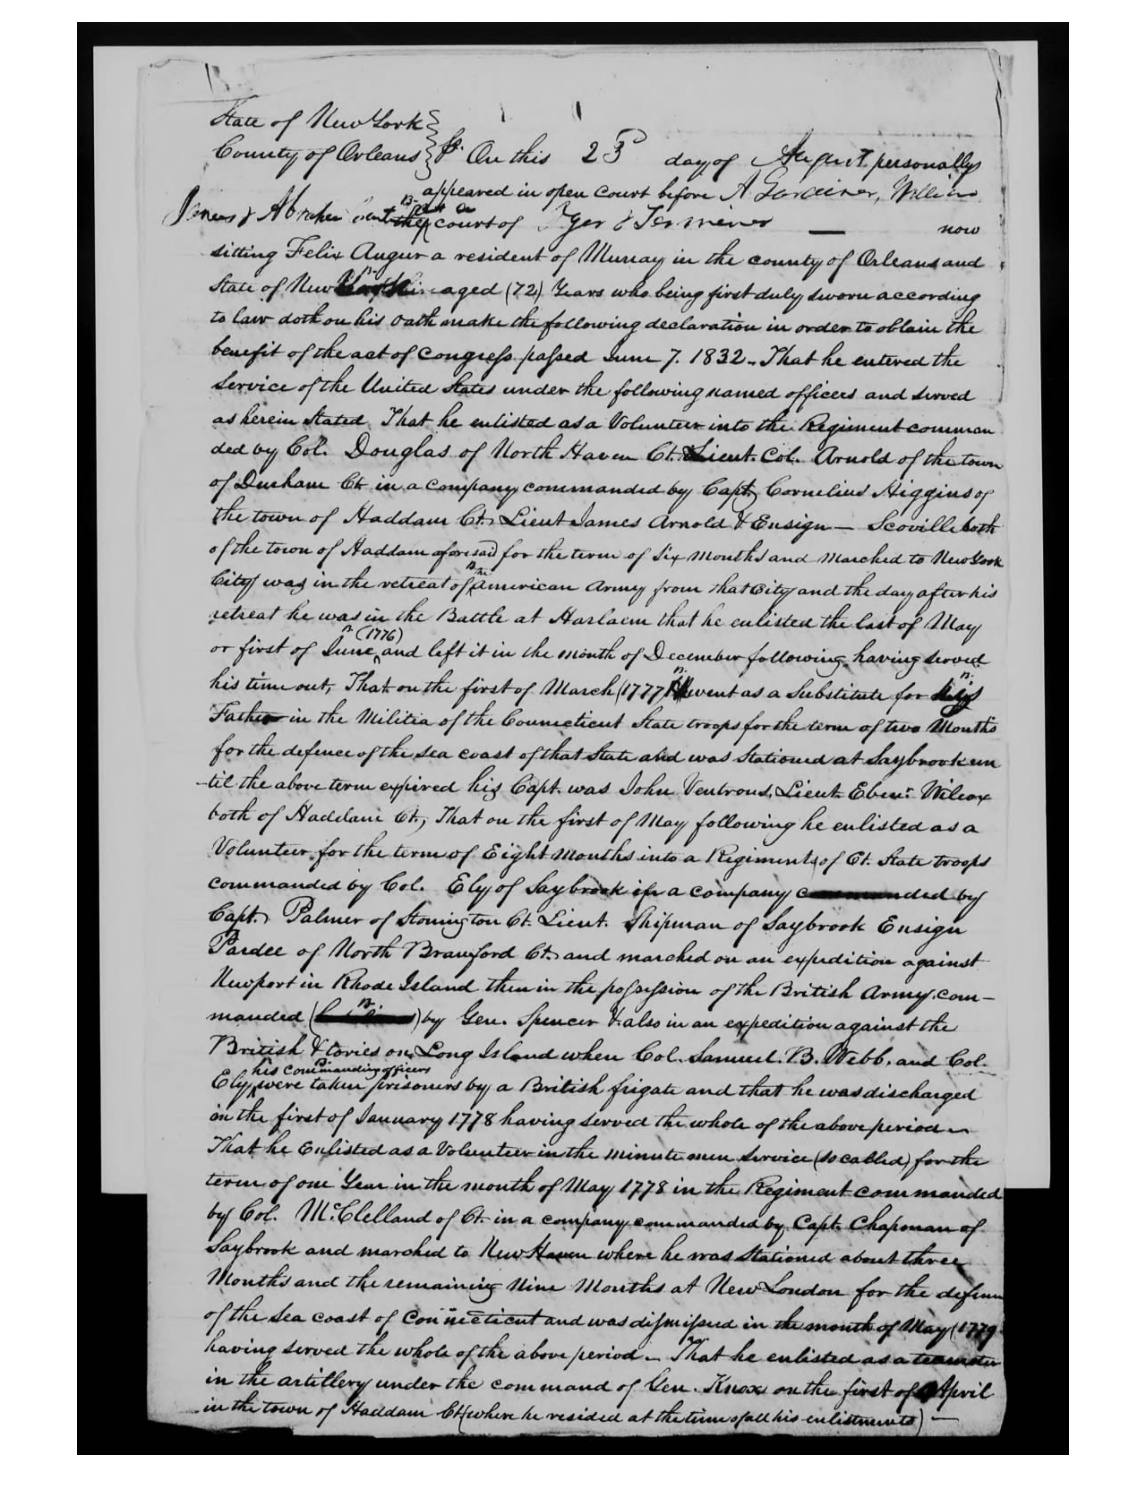 State of New York
County of Orleans } ss. On this 23d day of August personally
appeared in open Court before A Gardiner, William
Jones & Abraham the court of Oyer & Terminer — now
sitting Felix Augur a resident of Murray in the county of Orleans and
State of New aged (72) Years who being first duly sworn according
to law doth on his oath make the following declaration in order to obtain the
benefit of the act of Congress passed June 7. 1832. That he entered the
Service of the United States under the following named officers and served
as herein Stated. That he enlisted as a Volunteer into the Regiment comman
ded by Col. Douglas of North Haven Ct. Lieut. Col. Arnold of the town
of Durham Ct. in a company commanded by Capt. Cornelius Higgins of
the town of Haddam Ct. Lieut James Arnold & Ensign — Scoville both
of the town of Haddam aforesaid for the term of Six Months and marched to New York
City was in the retreat of the American Army from that City and the day after his
retreat he was in the Battle at Harlaem that he enlisted the last of May
or first of June (1776) and left it in the month of December following having served
his time out, That on the first of March (1777) went as a Substitute for his
Father in the Militia of the Connecticut State troops for the term of two Months
for the defence of the sea coast of that State and was Stationed at Saybrook un
-til the above term expired his Capt. was John Ventrous, Lieut Ebenr. Wilcox
both of Haddam Ct, That on the first of May following he enlisted as a
Volunteer for the term of Eight Months into a Regiment of Ct. State troops
commanded by Col. Ely of Saybrook in a company commanded by
Capt. Palmer of Stonington Ct. Lieut. Shipman of Saybrook Ensign
Pardee of North Branford Ct. and marched on an expedition against
Newport in Rhode Island then in the possession of the British Army com-
manded by Gen. Spencer & also in an expedition against the
British & tories on Long Island when Col. Samuel. B. Webb. and Col.
Ely his commanding officers were taken prisoners by a British frigate and that he was discharged
in the first of January 1778 having served the whole of the above period —
That he Enlisted as a Volunteer in the minute men service (so called) for the
term of one Year in the month of May 1778 in the Regiment commanded
by Col. McClelland of Ct. in a company commanded by Capt. Chapman of
Saybrook and marched to New Haven where he was Stationed about three
Months and the remaining Nine Months at New London for the defence
of the Sea coast of Connecticut and was dismissed in the month of May (1779
having served the whole of the above period — That he enlisted as a teamster
in the artillery under the command of Gen. Knox on the first of April
in the town of Haddam Ct (where he resided at the time of all his enlistments) —